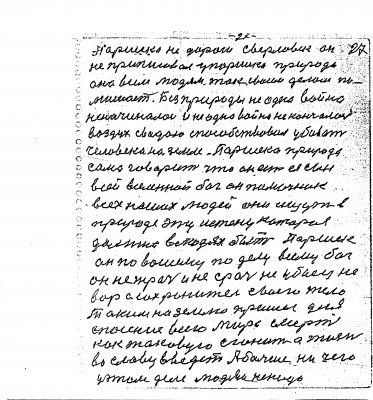 -27- 27
Паршек не дорог сверловек он
не приписывал у паршека природа
она всем людям так в своем делом по-
мишает. Без природы не одна война
не начиналась и не одна война не кончалась
воздух сводою способствовал убивать
человека на земле. Паршека природа
сама говорит что он есть сын
всей вселенной бог он помощник
всех наших людей они ищут в
природе эту истену которая
должна в людях быть Паршек
он по вашему по делу всему бог
он не врач и не срач не убиец не
вор а сохранитель своего тело
Таким на землю пришел для
спосение всего мира смерть
как таковую сгонит а жизнь
во славу введет А болие ни чего
у этом деле людям